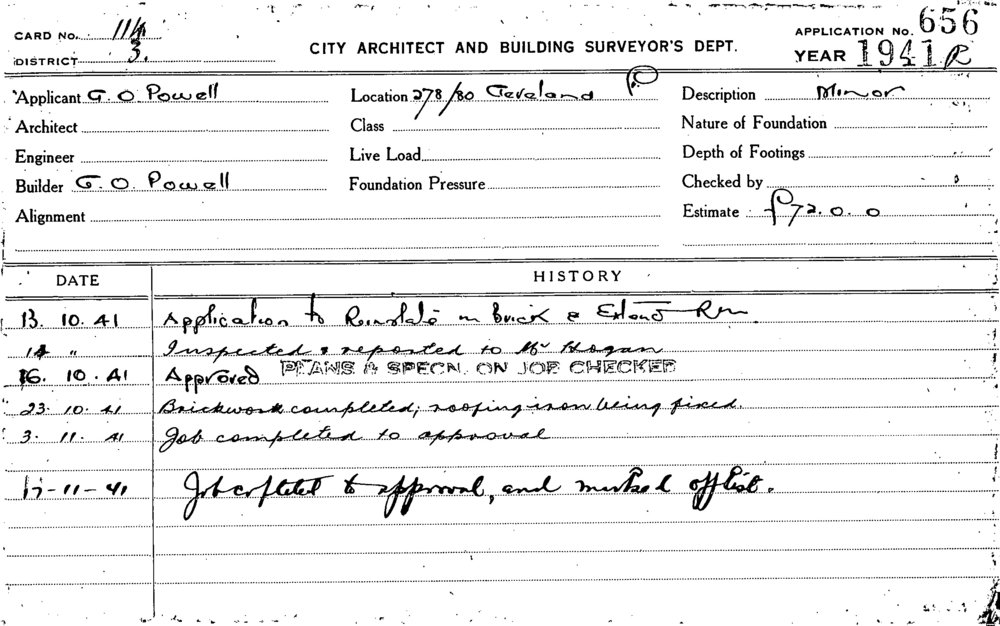 CARD No. 114
DISTRICT 3.
CITY ARCHITECT AND BUILDING SURVEYOR'S DEPT.
APPLICATION No. 656
YEAR 1941 R
Applicant G. O. Powell
Location 278/80 Cleveland
Description Minor
Architect
Class
Nature of Foundation
Engineer
Live Load
Depth of Footings
Builder G. O. Powell
Foundation Pressure
Checked by
Alignment
Estimate £72.0.0
DATE
HISTORY
13. 10. 41 Application to Reinstate in Brick & Extend Rm.
14 " Inspected & reported to Mr Hogan
16. 10. 41 Approved PLANS & SPECN. ON JOB CHECKED
23. 10. 41 Brickwork completed; roofing iron being fixed.
3. 11. 41 Job completed to approval
-11-41 Job completed to approval, and marked off list.